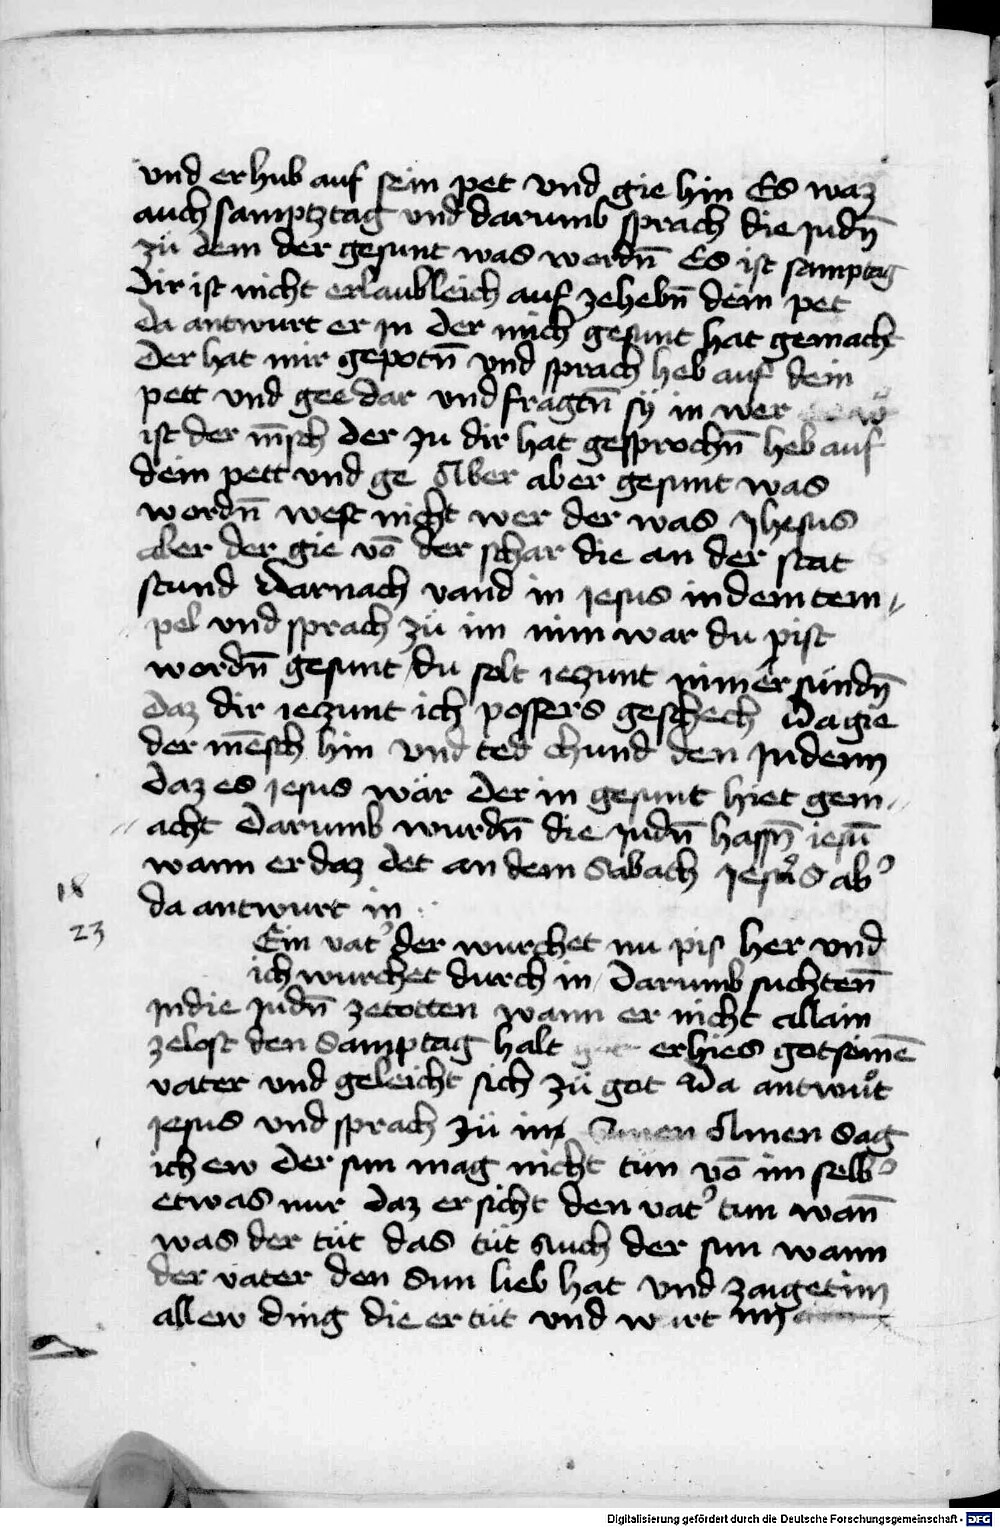 vnd er hub auf sein pet vnd gie hin Es waz
auch samptztag vnd darumb sprach die judn̄
zü dem der gesunt was wordn̄ Es ist samptag
Dir ist nicht erlaubleich auf zehebn̄ dein pet
Da antwurt er in Der mich gesunt hat gemacht
Der hat mir gepotn̄ vnd sprach heb auf dein
pett vnd gee dar vnd fragtn̄ sÿ in wer
ist der m̄sch Der zu dir hat gesprochn̄ heb auf
dein pett vnd ge Aber aber gesunt was
wordn̄ west nicht wer der was Jhesus
aber der gie vō der schar die an der stat
stund Darnach vand in jesus in dem tem〃
pel vnd sprach zü im nim war du pist
wordn̄ gesunt du solt ieczunt nimer sündn̄
Daz dir ieczunt ich possers geschech Da gie
der mēsch hin vnd ted chund den Juden
Daz es jesus wär Der in gesunt hiet gem〃
〃acht Darumb wurdn̄ die judn̄ hassn̄ iesū
wann er daz det an dem Sabach Jesus ab᾽
da antwurt in
18
23
Ein vat᾽ der wurchet nu pis her vnd
ich wurchet durch in Darumb suchten̄
in die judn̄ zetotten wann er nicht allain
zelost den Samptag halt er hies got seinē
vater vnd geleicht sich zü got Da antwurt
jesus vnd sprach zü im Amen Amen Sag
ich ew Der sun mag nicht tün vō im selb᾽
etwas nur Daz er sicht den vat᾽ tun wan̄
was der tüt das tüt auch der sun wann
der vater den Sun lieb hat vnd zaiget im
allew ding die er tüt vnd wirt im
Digitalisierung gefördert durch die Deutsche Forschungsgemeinschaft - DFG